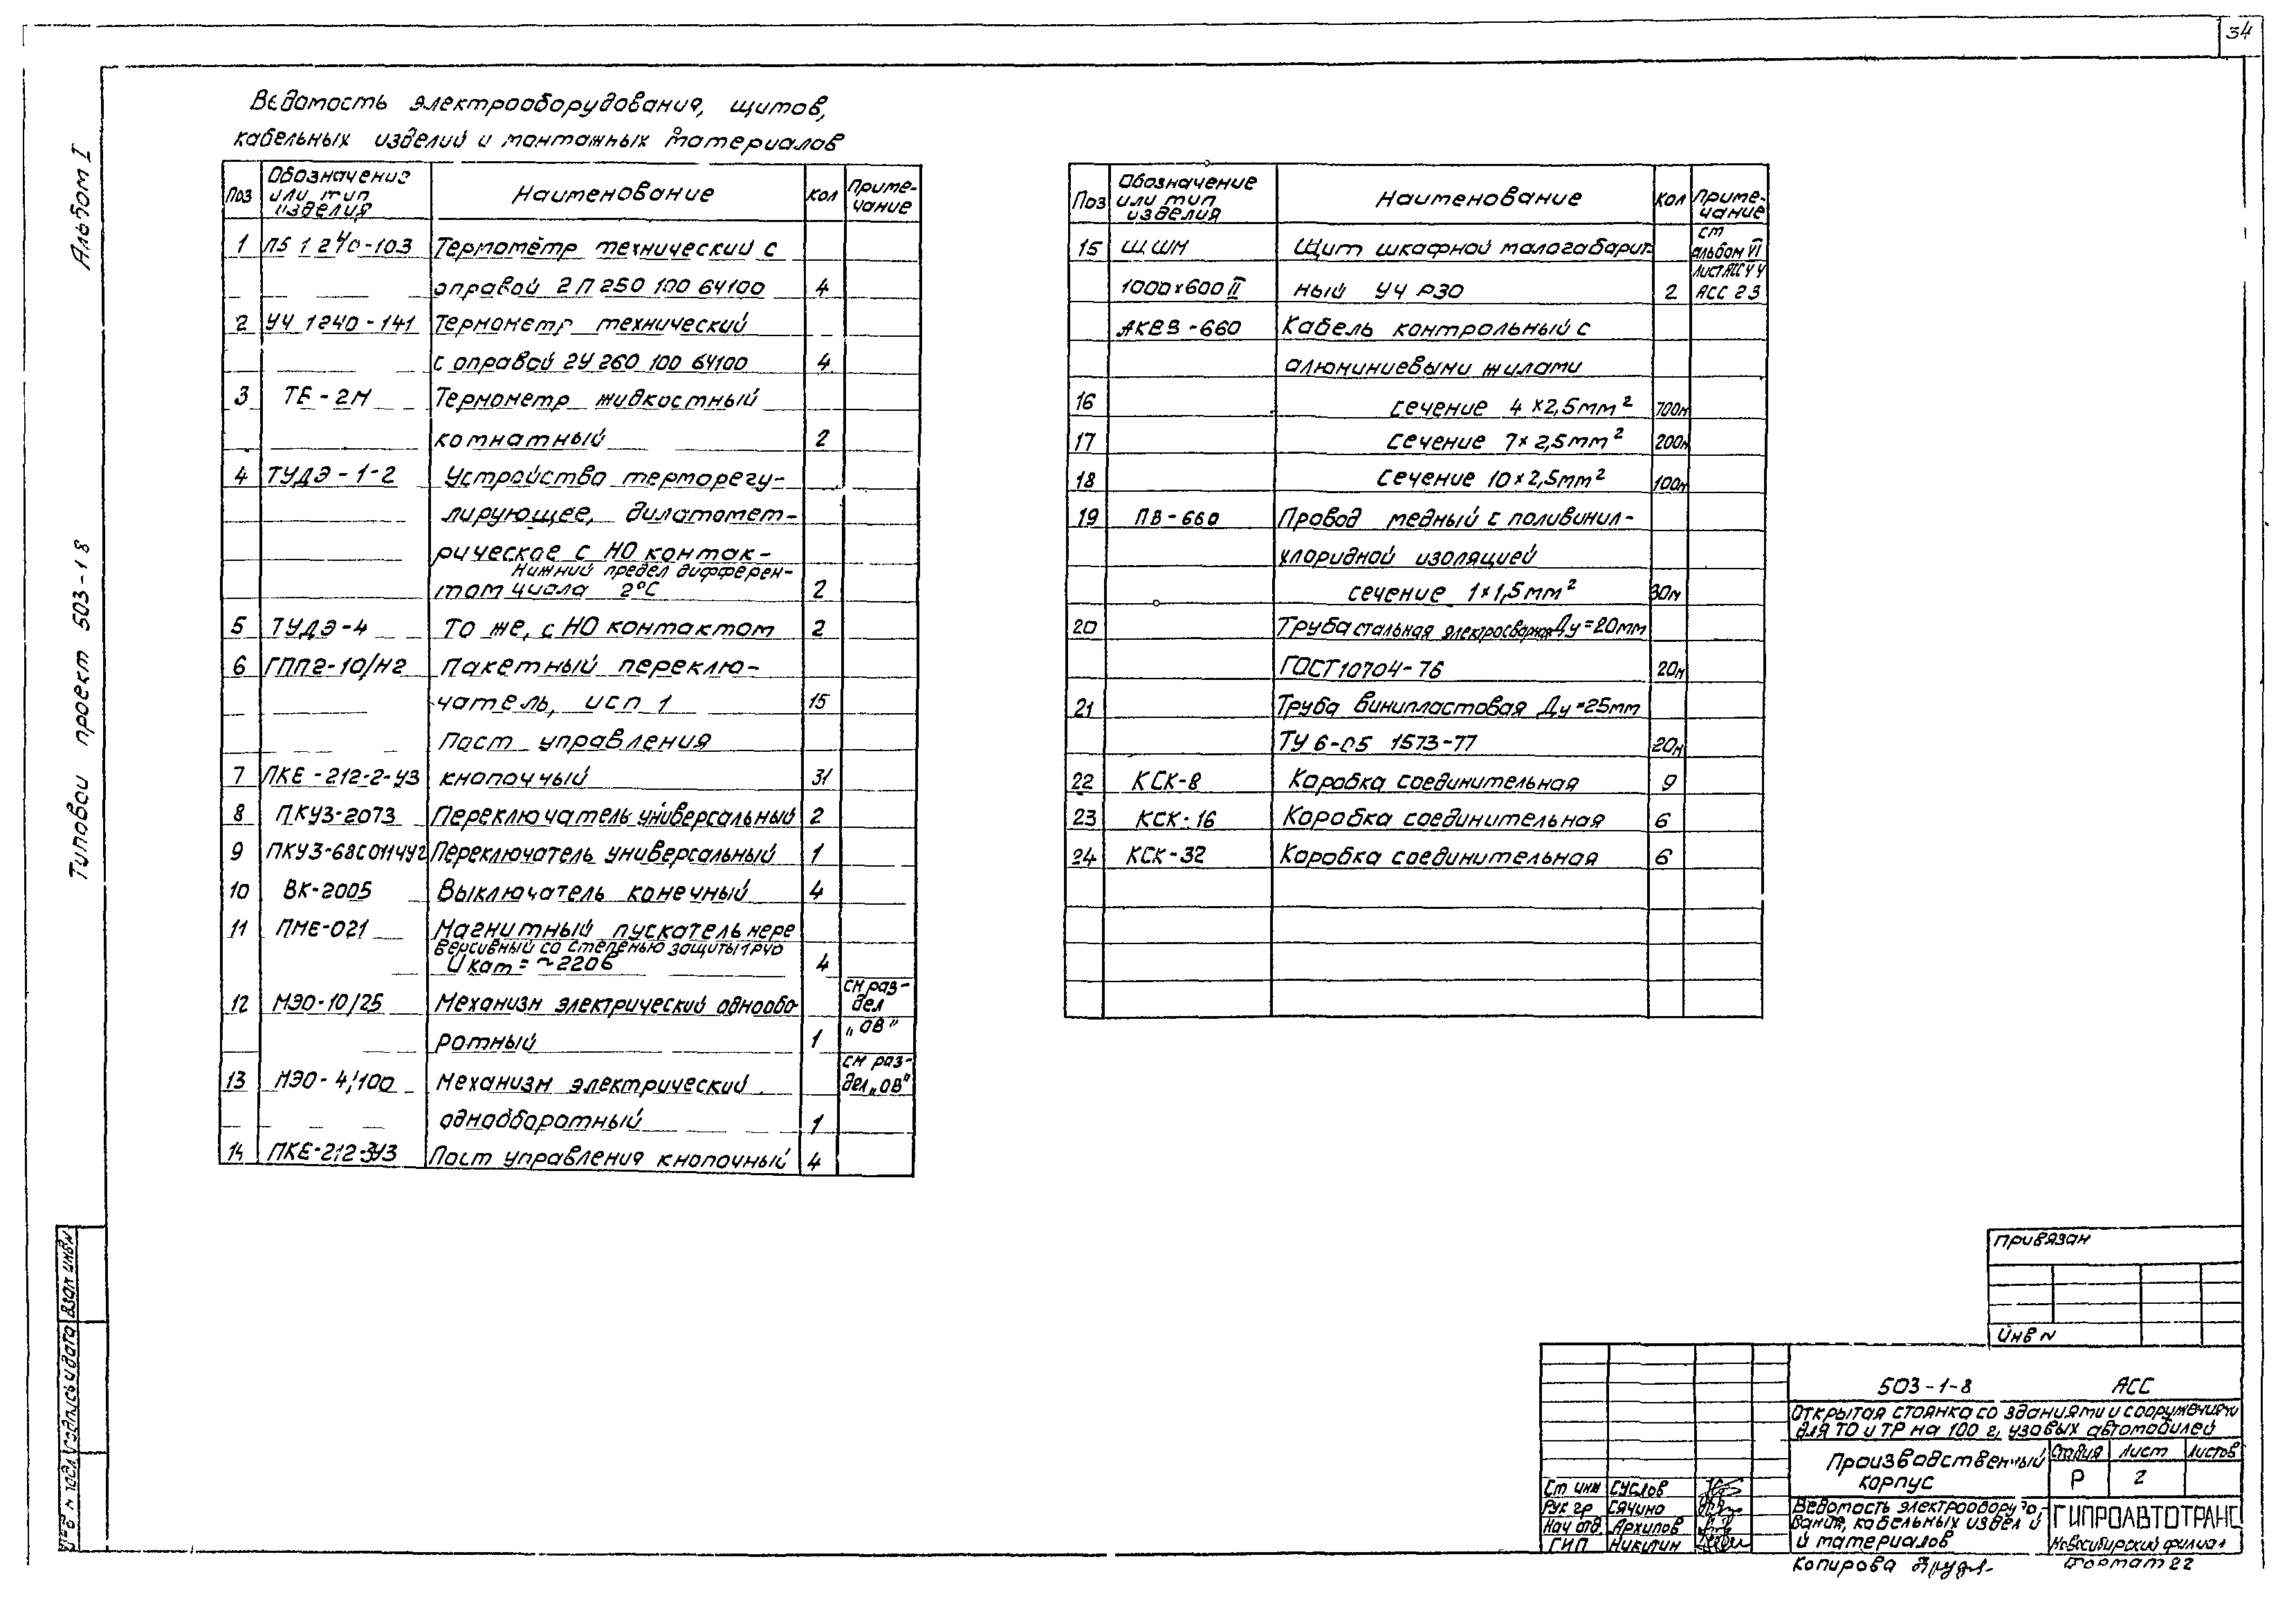 34
Альбом I
Типовой проект 503-1 8
Ведомость электрооборудования, щитов,
кабельных изделий и монтажных материалов
Поз | Обозначение или тип изделия | Наименование | Кол | Приме-чание
1 | П5 1 240-103 | Термометр технический с
оправой 2П 250 100 64100 | 4
2 | У4 1240-141 | Термометр технический
с оправой 2У 260 100 64100 | 4
3 | ТБ-2М | Термометр жидкостный
комнатный | 2
4 | ТУДЭ-1-2 | Устройство терморегу-
лирующее, дилатомет-
рическое с НО контак-
Нижний предел дифферен-
том циала 2°С | 2
5 | ТУДЭ-4 | То же, с НО контактом | 2
6 | ГПП2-10/Н2 | Пакетный переклю-
чатель, исп 1 | 15
Пост управления
7 | ПКЕ-212-2-У3 | кнопочный | 31
8 | ПКУ3-2073 | Переключатель универсальный | 2
9 | ПКУ3-68С0114У2 | Переключатель универсальный | 1
10 | ВК-2005 | Выключатель конечный | 4
11 | ПМЕ-021 | Магнитный пускатель нере
версивный со степенью защиты
Uкат=~220В | 4
12 | МЭО-10/25 | Механизм электрический однообо | см раз-дел
ротный | 1 | „ОВ"
13 | МЭО-4/100 | Механизм электрический | см раз-дел „ОВ"
однооборотный | 1
14 | ПКЕ-212-3У3 | Пост управления кнопочный | 4
Поз | Обозначение или тип изделия | Наименование | Кол | Приме-чание
15 | ЩШМ | Щит шкафной малогабарит- | см альбом VI
1000х600 II | ный УЧ Р30 | 2 | АСС 23
АКВВ-660 | Кабель контрольный с
алюминиевыми жилами
16 | сечение 4х2,5мм² | 700м
17 | сечение 7х2,5мм² | 200м
18 | сечение 10х2,5мм² | 100м
19 | ПВ-660 | Провод медный с поливинил-
хлоридной изоляцией
сечение 1х1,5мм² | 30м
20 | Труба стальная электросварная Ду=20мм
ГОСТ 10704-76 | 20м
21 | Труба винипластовая Ду=25мм
ТУ 6-05 1573-77 | 20м
22 | КСК-8 | Коробка соединительная | 9
23 | КСК-16 | Коробка соединительная | 6
24 | КСК-32 | Коробка соединительная | 6
Привязан
Инв N
503-1-8 АСС
Открытая стоянка со зданиями и сооружениями
для ТО и ТР на 100 грузовых автомобилей
Производственный
корпус
Стадия | Лист | Листов
Р | 2
Ведомость электрооборудо-
вания, кабельных издел и
и материалов
ГИПРОАВТОТРАНС
Новосибирский филиал
Ст инж Суслов
Рук гр Сячино
Нач отд. Архипов
ГИП Никитин
Копирова
Формат 22
Взам инв N
Подпись и дата
Инв N подл